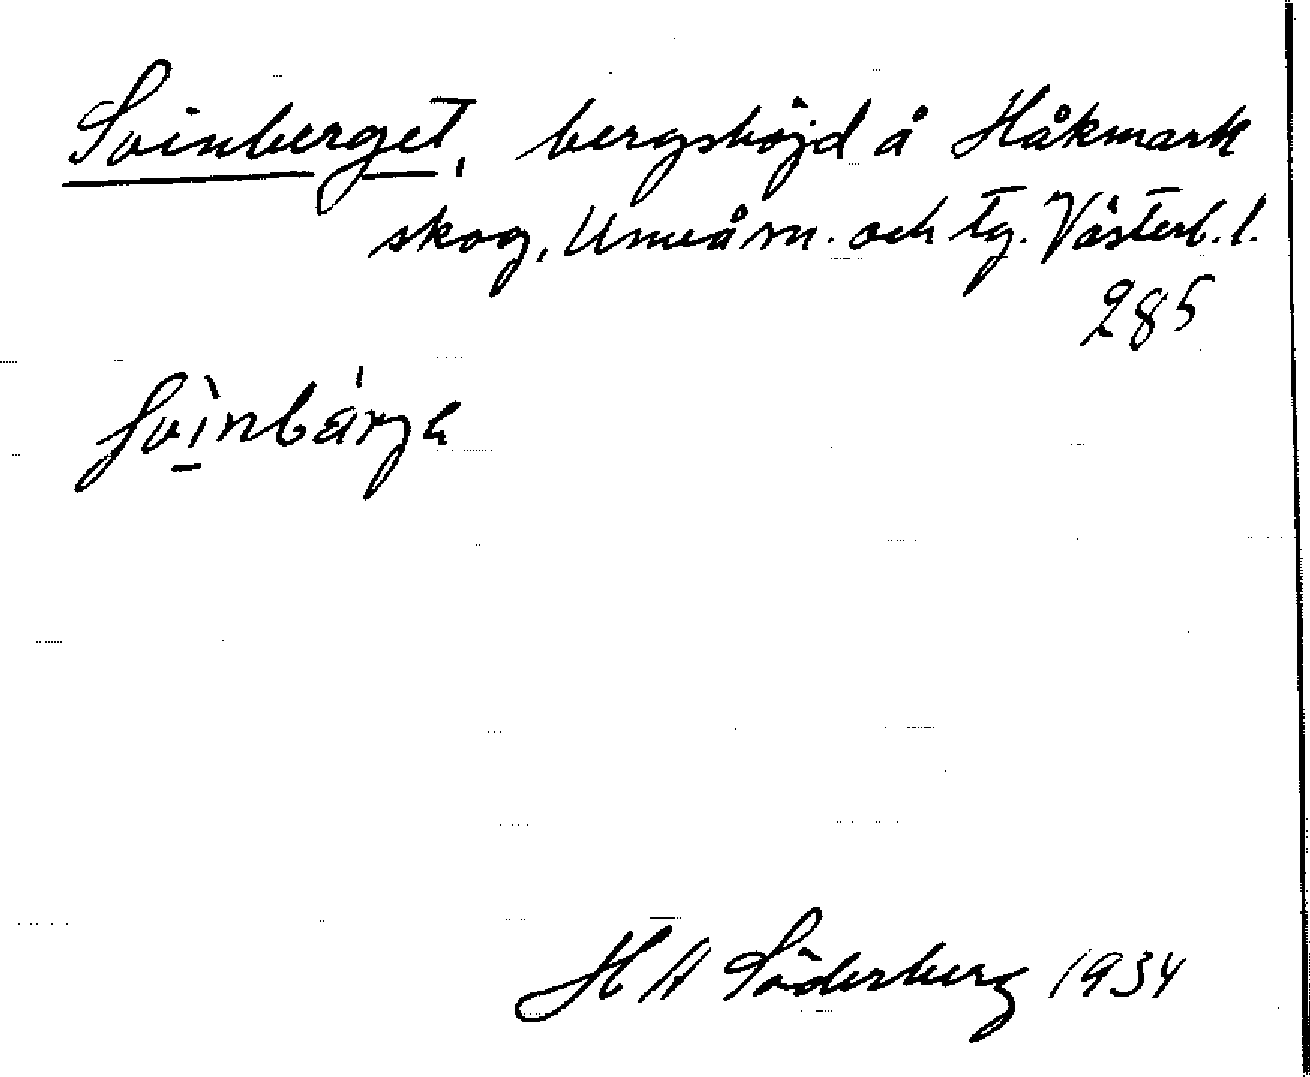 Svinberget, bergshöjd å Håkmark
skog, Umeå sn. och tg. Västerb. l.
285
svìnbárgɐ
H A Söderberg 1934